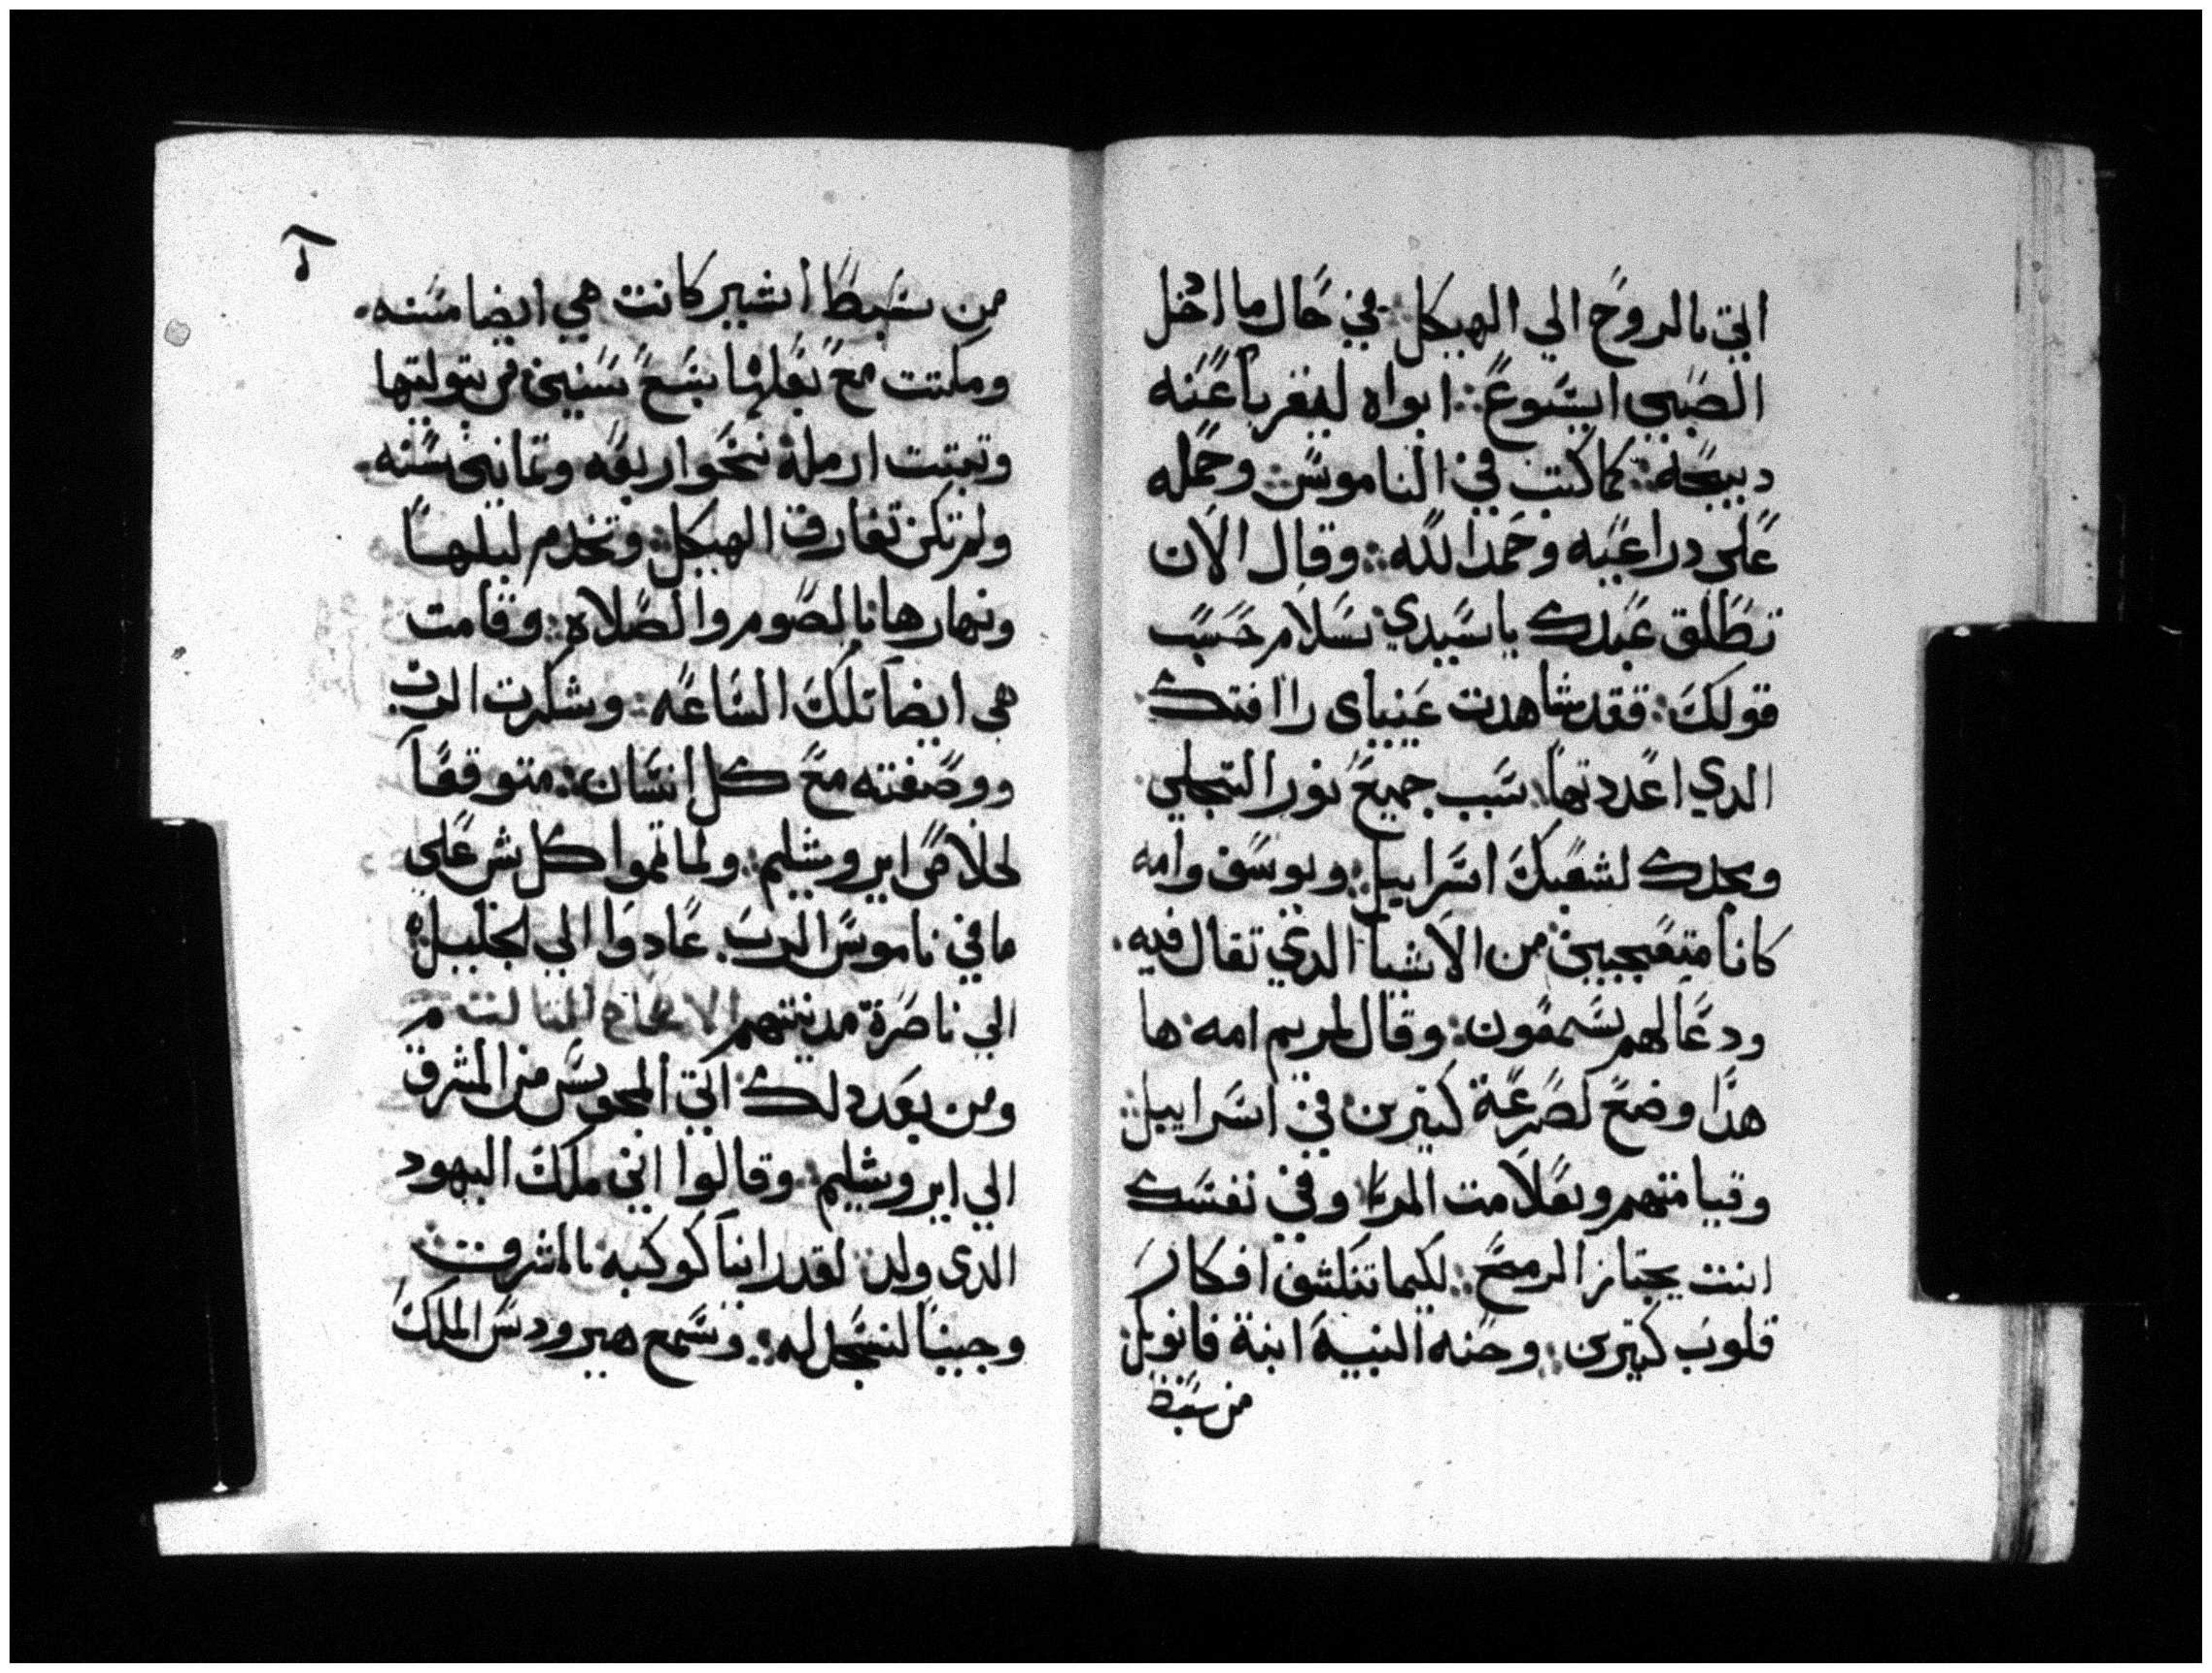 اتي بالروح الي الهيكل: في حال ما ادخل
الصبي ايسوع: ابواه ليقربا عنه
دبيحة: كما كتب في الناموس: وحمله
على دراعيه وحمد الله: وقال الان
تطلق عبدك ياسيدي: بسلام حسب
قولك: فقد شاهدت عيناي راافتك
الدي اعددتها: بسبب جميع نور التجلي
ومجدك لشعبك اسراييل: ويوسف وامه
كانا متعجبين: من الاشيا الدي تقال فيه.
ودعا لهم يسمعون: وقال لمريم امه: ها
هدا وضع لصرعة كتيرين: في اسراييل:
وقيامتهم وبعلامت المرا: وفي نفسك
انت يجتاز الرمح: لكيما تنكشف افكار
قلوب كتيرين: وحنه النبية ابنة فانويل:
من سبط
من سبط اشير كانت هي ايضا مسنه.
ومكتت مع بعلها سبع سنين: من بتوليتها
وتبتت ارملة نحو اربعه وتمانين سنه.
ولم تكن تفارق الهيكل: وتخدم ليلها
ونهارها بالصوم والصلاه: وقامت
هي ايضا تلك الساعه: وشكرت الرب
ووصفته مع كل انسان: متوقعا
لخلاص ايروشليم: ولما تموا كل شي على
ما في ناموس الرب. عادوا الي الجليل:
الي ناصرة مدينتهم الاصحاح التالت
ومن بعد دلك: اتي المجوس من المشرق
الي ايروشليم: وقالوا اين ملك اليهود
الدي ولد: لقد راينا كوكبه بالمشرق:
وجينا لنسجد له: وسمع هيرودس الملك